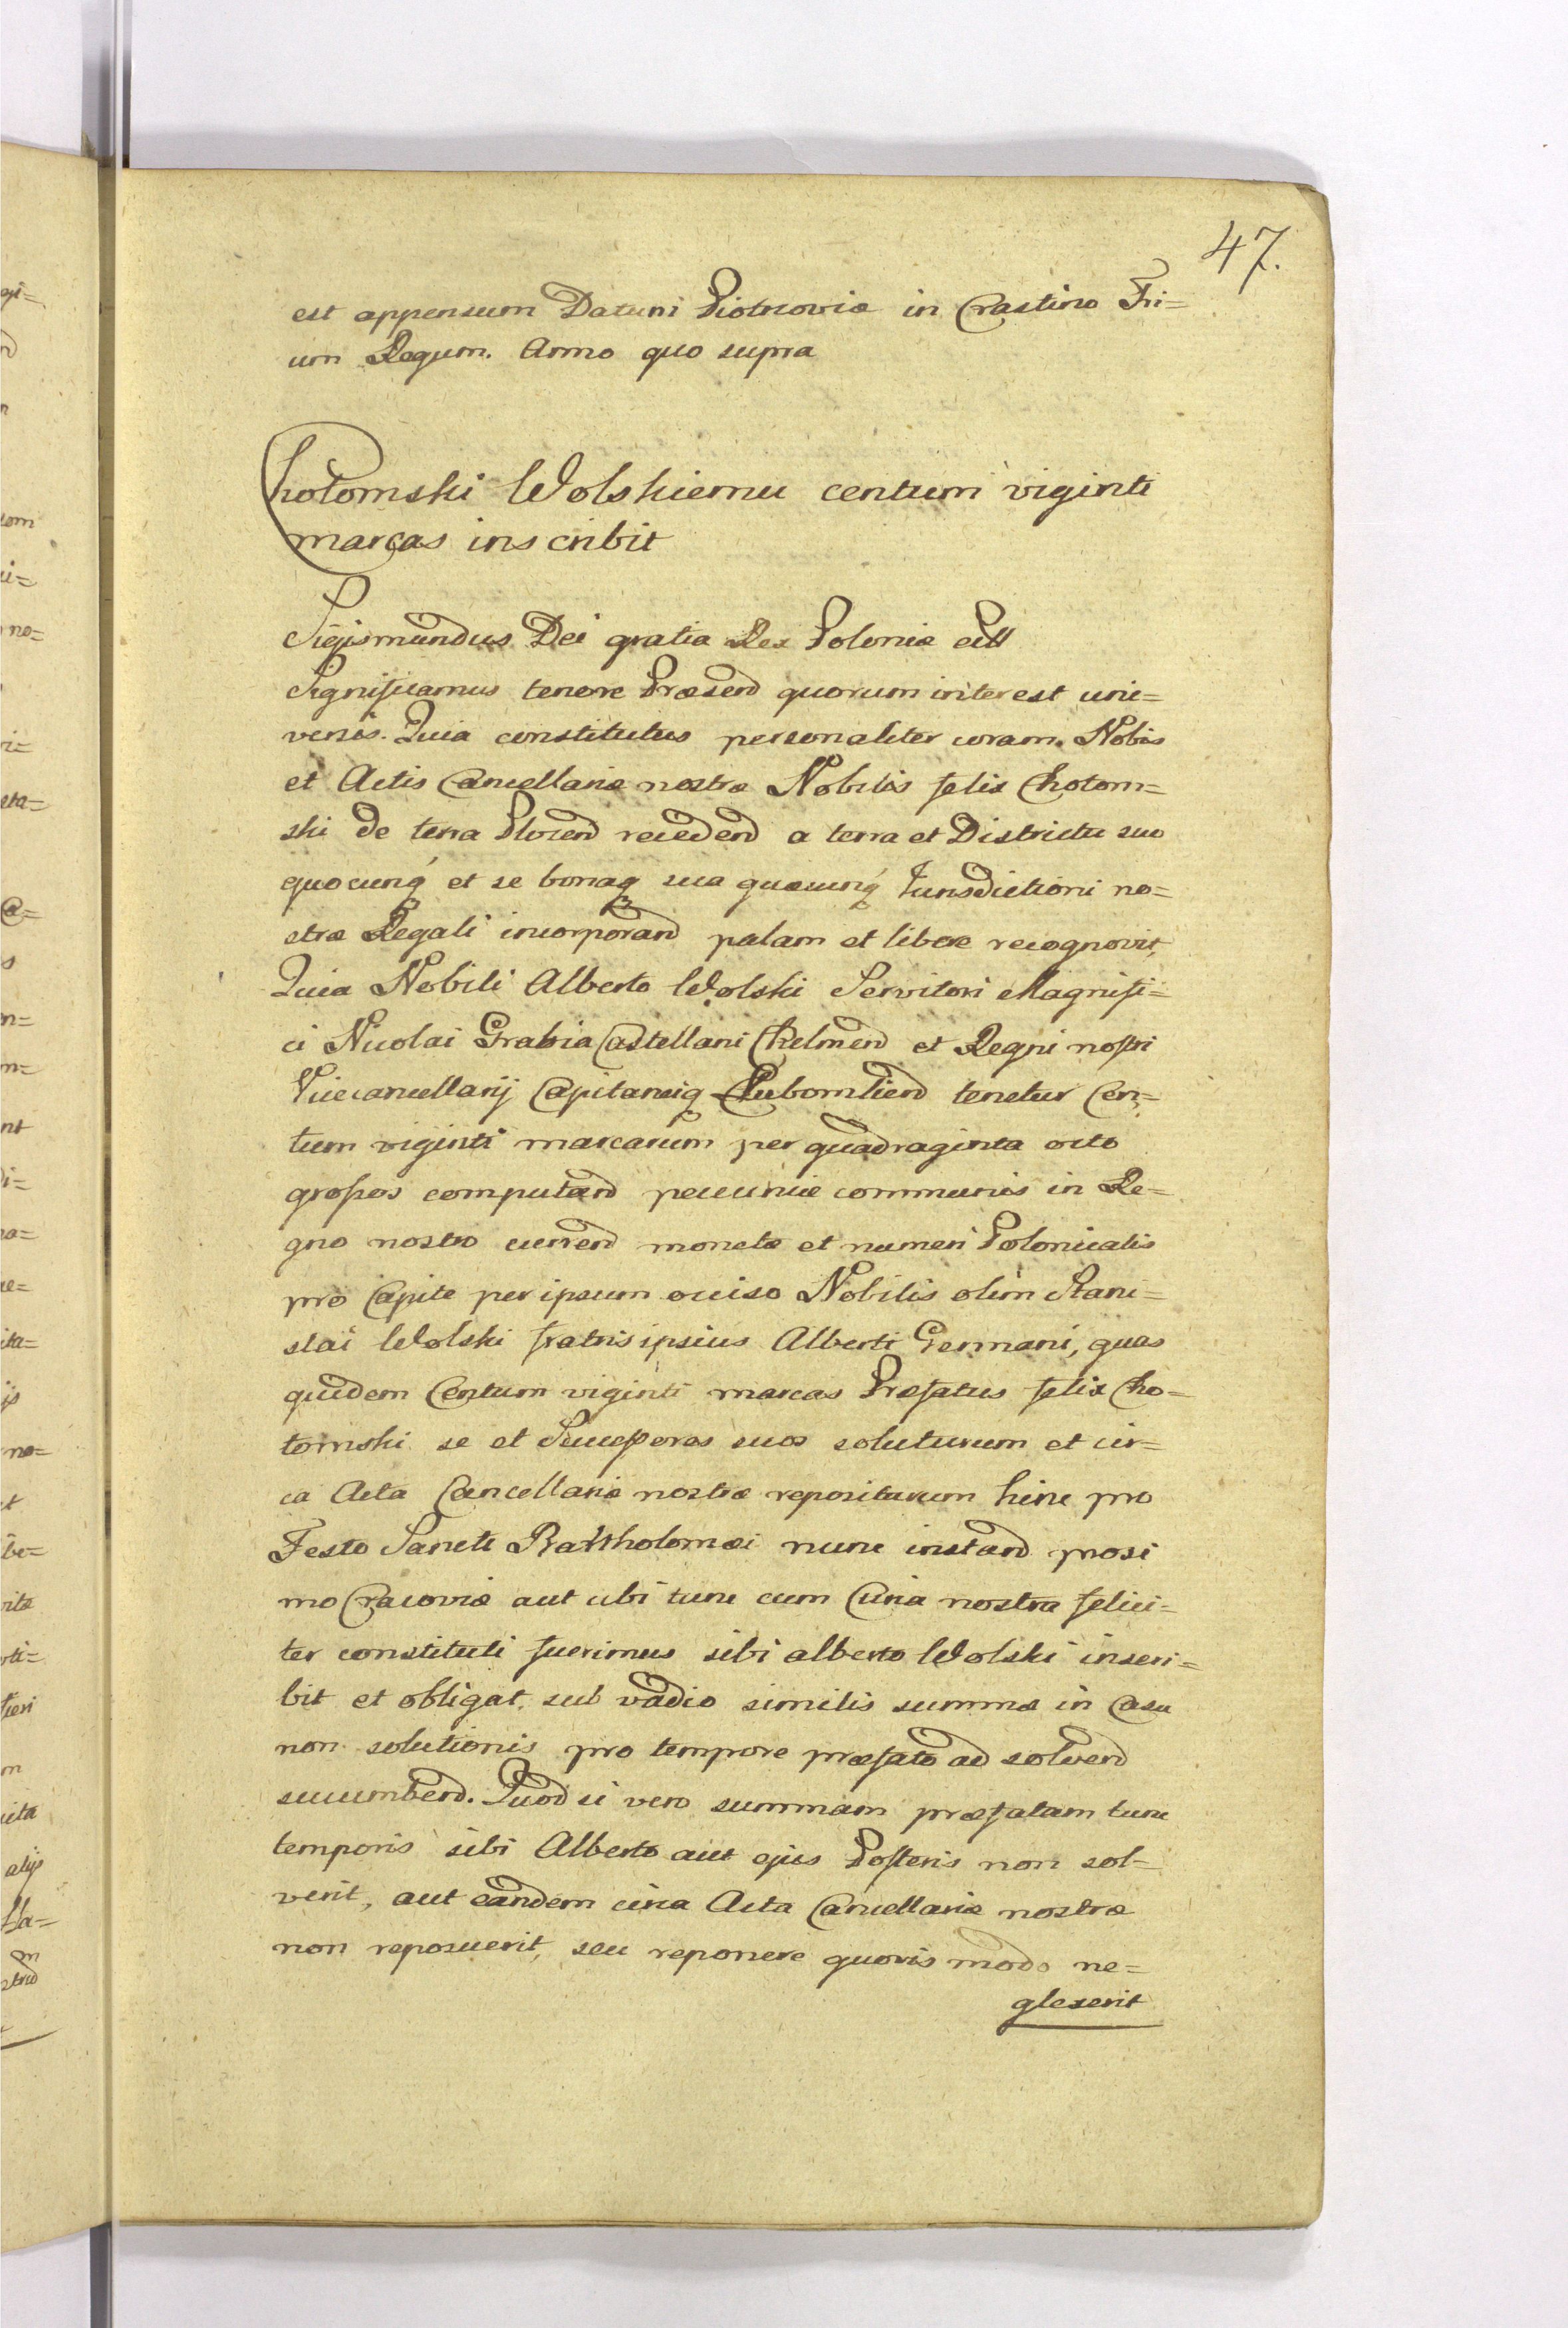 47.
est appensum Datum Piotrcoviæ in Crastino Tri=
um Regum. Anno quo supra
Chotomski Wolskiemu centum viginti
marcas inscribit
Sigismundus Dei gratia Rex Poloniæ ettt
Significamus tenore Præsend quorum interest uni=
versis. Quia constitutus personaliter coram Nobis
et Actis Cancellariæ nostræ Nobilis felix Chotom=
ski de terra Plocend recedend a terra et Districtu suo
quocunq et se bonaq sua quæcunq Jurisdictioni no=
stræ Regali incorporand palam et libere recognovit,
Quia Nobili Alberto Wolski Servitori Magnifi=
ci Nicolai Grabia Castellani Chelmend et Regni nostri
Vicecancellarij Capitaneiq Lubomliend tenetur Cen=
tum viginti marcarum per quadraginta octo
grossos computand pecuniæ communis in Re=
gno nostro currend monetæ et numeri Polonicalis
pro Capite per ipsum occiso Nobilis olim Stani=
slai Wolski fratris ipsius Alberti Germani, quas
quidem Centum viginti marcas Præfatus felix Cho=
tomski se et Successores suos soluturum et cir=
ca Acta Cancellariæ nostræ repositurum hinc pro
Festo Sancti Bartholomæi nunc instand proxi
mo Cracoviæ aut ubi tunc cum Curia nostra felici=
ter constituti fuerimus sibi alberto Wolski inscri=
bit et obligat sub vadio similis summæ in Casu
non solutionis pro tempore præfato ad solvend
succumbend. Quod si vero summam præfatam tunc
temporis sibi Alberto aut ejus Posteris non sol=
verit, aut eandem circa Acta Cancellariæ nostræ
non reposuerit, seu reponere quovis modo ne=
glexerit